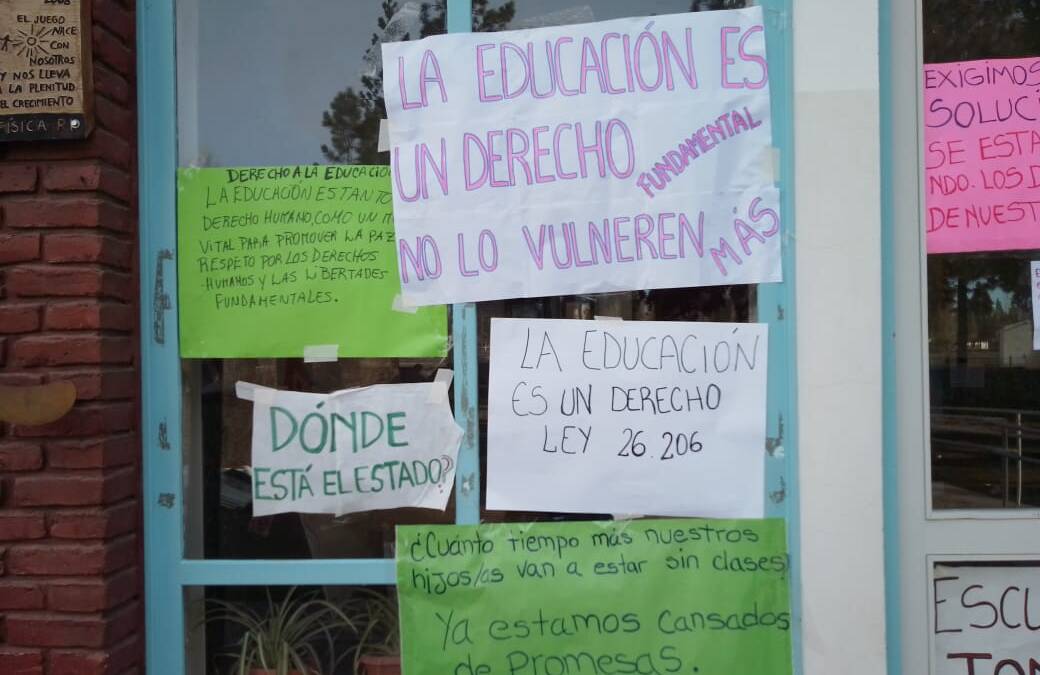 2008
EL JUEGO
NACE
CON
NOSOTROS
Y NOS LLEVA
A LA PLENITUD
EL CRECIMIENTO
FÍSICA PP
DERECHO A LA EDUCACIO
LA EDUCACIÓN ES TANTO
DERECHO HUMANO, COMO UN M
VITAL PARA PROMOVER LA PAZ
RESPETO POR LOS DERECHOS
HUMANOS Y LAS LIBERTADES
FUNDAMENTALES.
LA EDUCACIÓN ES
UN DERECHO
FUNDAMENTAL
NO LO VULNEREN
MÁS
DÓNDE
ESTÁ EL ESTADO?
LA EDUCACIÓN
ES UN DERECHO
LEY 26.206
¿Cuánto tiempo más nuestros
hijos/as van a estar sin clases?
Ya estamos cansados
de Promesas.
EXIGIMOS
SOLUCI
SE ESTA
NDO. LOS D
DE NUEST
ESCU
TOM